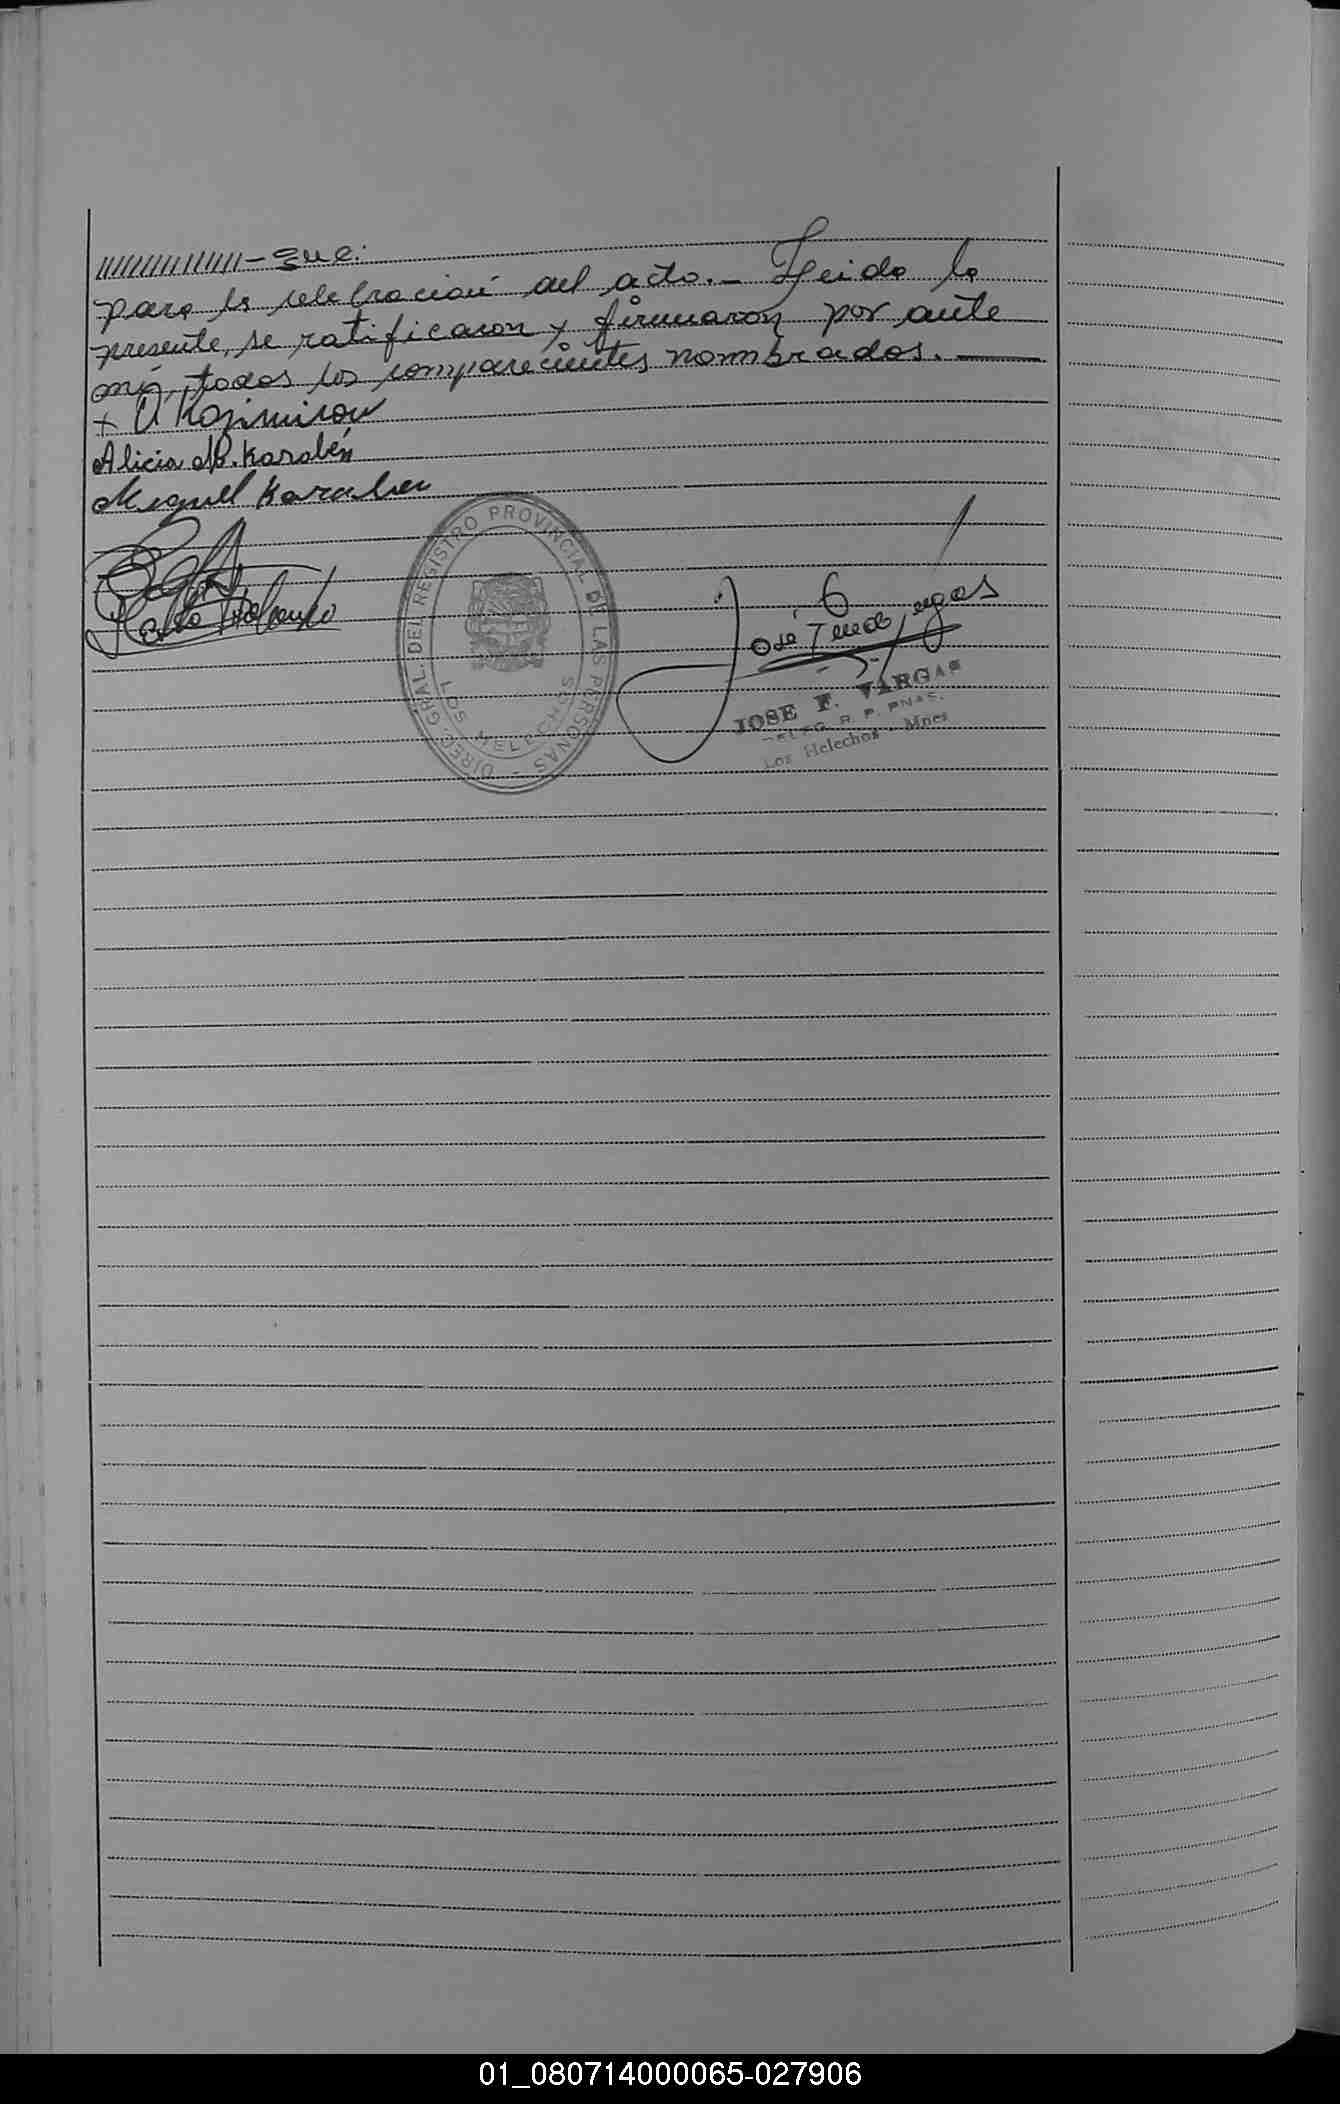 //////////////-que:
para la celebracion del acto.- Leida la
presente, se ratificaron y firmaron por ante
mi, todos los comparecientes nombrados.
Alicia M. Karabén
Miguel Karaben
DIREC. GRAL. DEL REGISTRO PROVINCIAL DE LAS PERSONAS -
LOS HELECHOS
JOSE F. VARGAS
DELEG. R. P. PNAS.
Los Helechos - Mnes
01_080714000065-027906